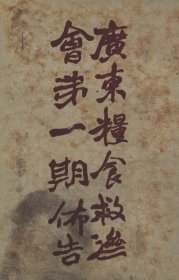 廣東糧食救濟
會第一期佈告